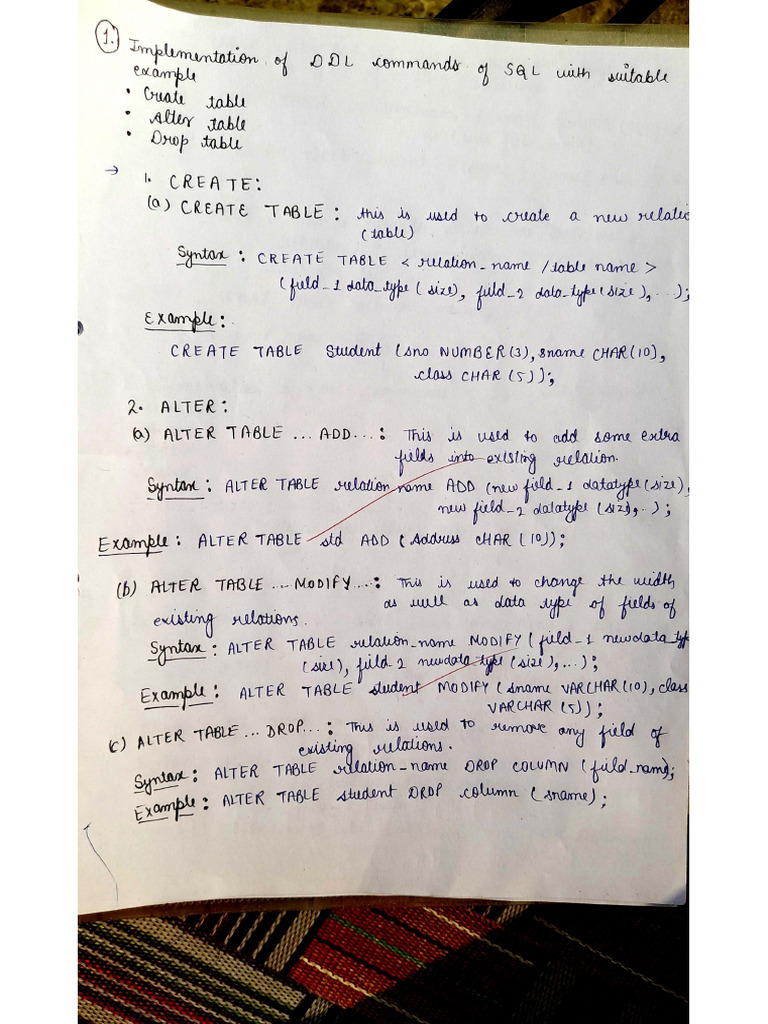 1. Implementation of DDL commands of SQL with suitable
example
• Create table
• Alter table
• Drop table
→ 1. CREATE:
(a) CREATE TABLE: this is used to create a new relatio
(table)
Syntax: CREATE TABLE < relation_name / table name >
(field_1 data_type (size), field_2 data_type (size), ...);
Example:
CREATE TABLE Student (sno NUMBER(3), sname CHAR(10),
class CHAR (5));
2. ALTER:
(a) ALTER TABLE ... ADD...: This is used to add some extra
fields into existing relation.
Syntax: ALTER TABLE relation name ADD (new field_1 datatype (size),
new field_2 datatype (size), ..);
Example: ALTER TABLE std ADD (Address CHAR (10));
(b) ALTER TABLE ... MODIFY...: This is used to change the width
as well as data type of fields of
existing relations.
Syntax: ALTER TABLE relation_name MODIFY (field_1 newdata_type
(size), field_2 newdata_type (size), ...);
Example: ALTER TABLE student MODIFY (sname VARCHAR(10), class
VARCHAR (5));
(c) ALTER TABLE ... DROP...: This is used to remove any field of
existing relations.
Syntax: ALTER TABLE relation_name DROP COLUMN (field_name);
Example: ALTER TABLE student DROP column (sname);